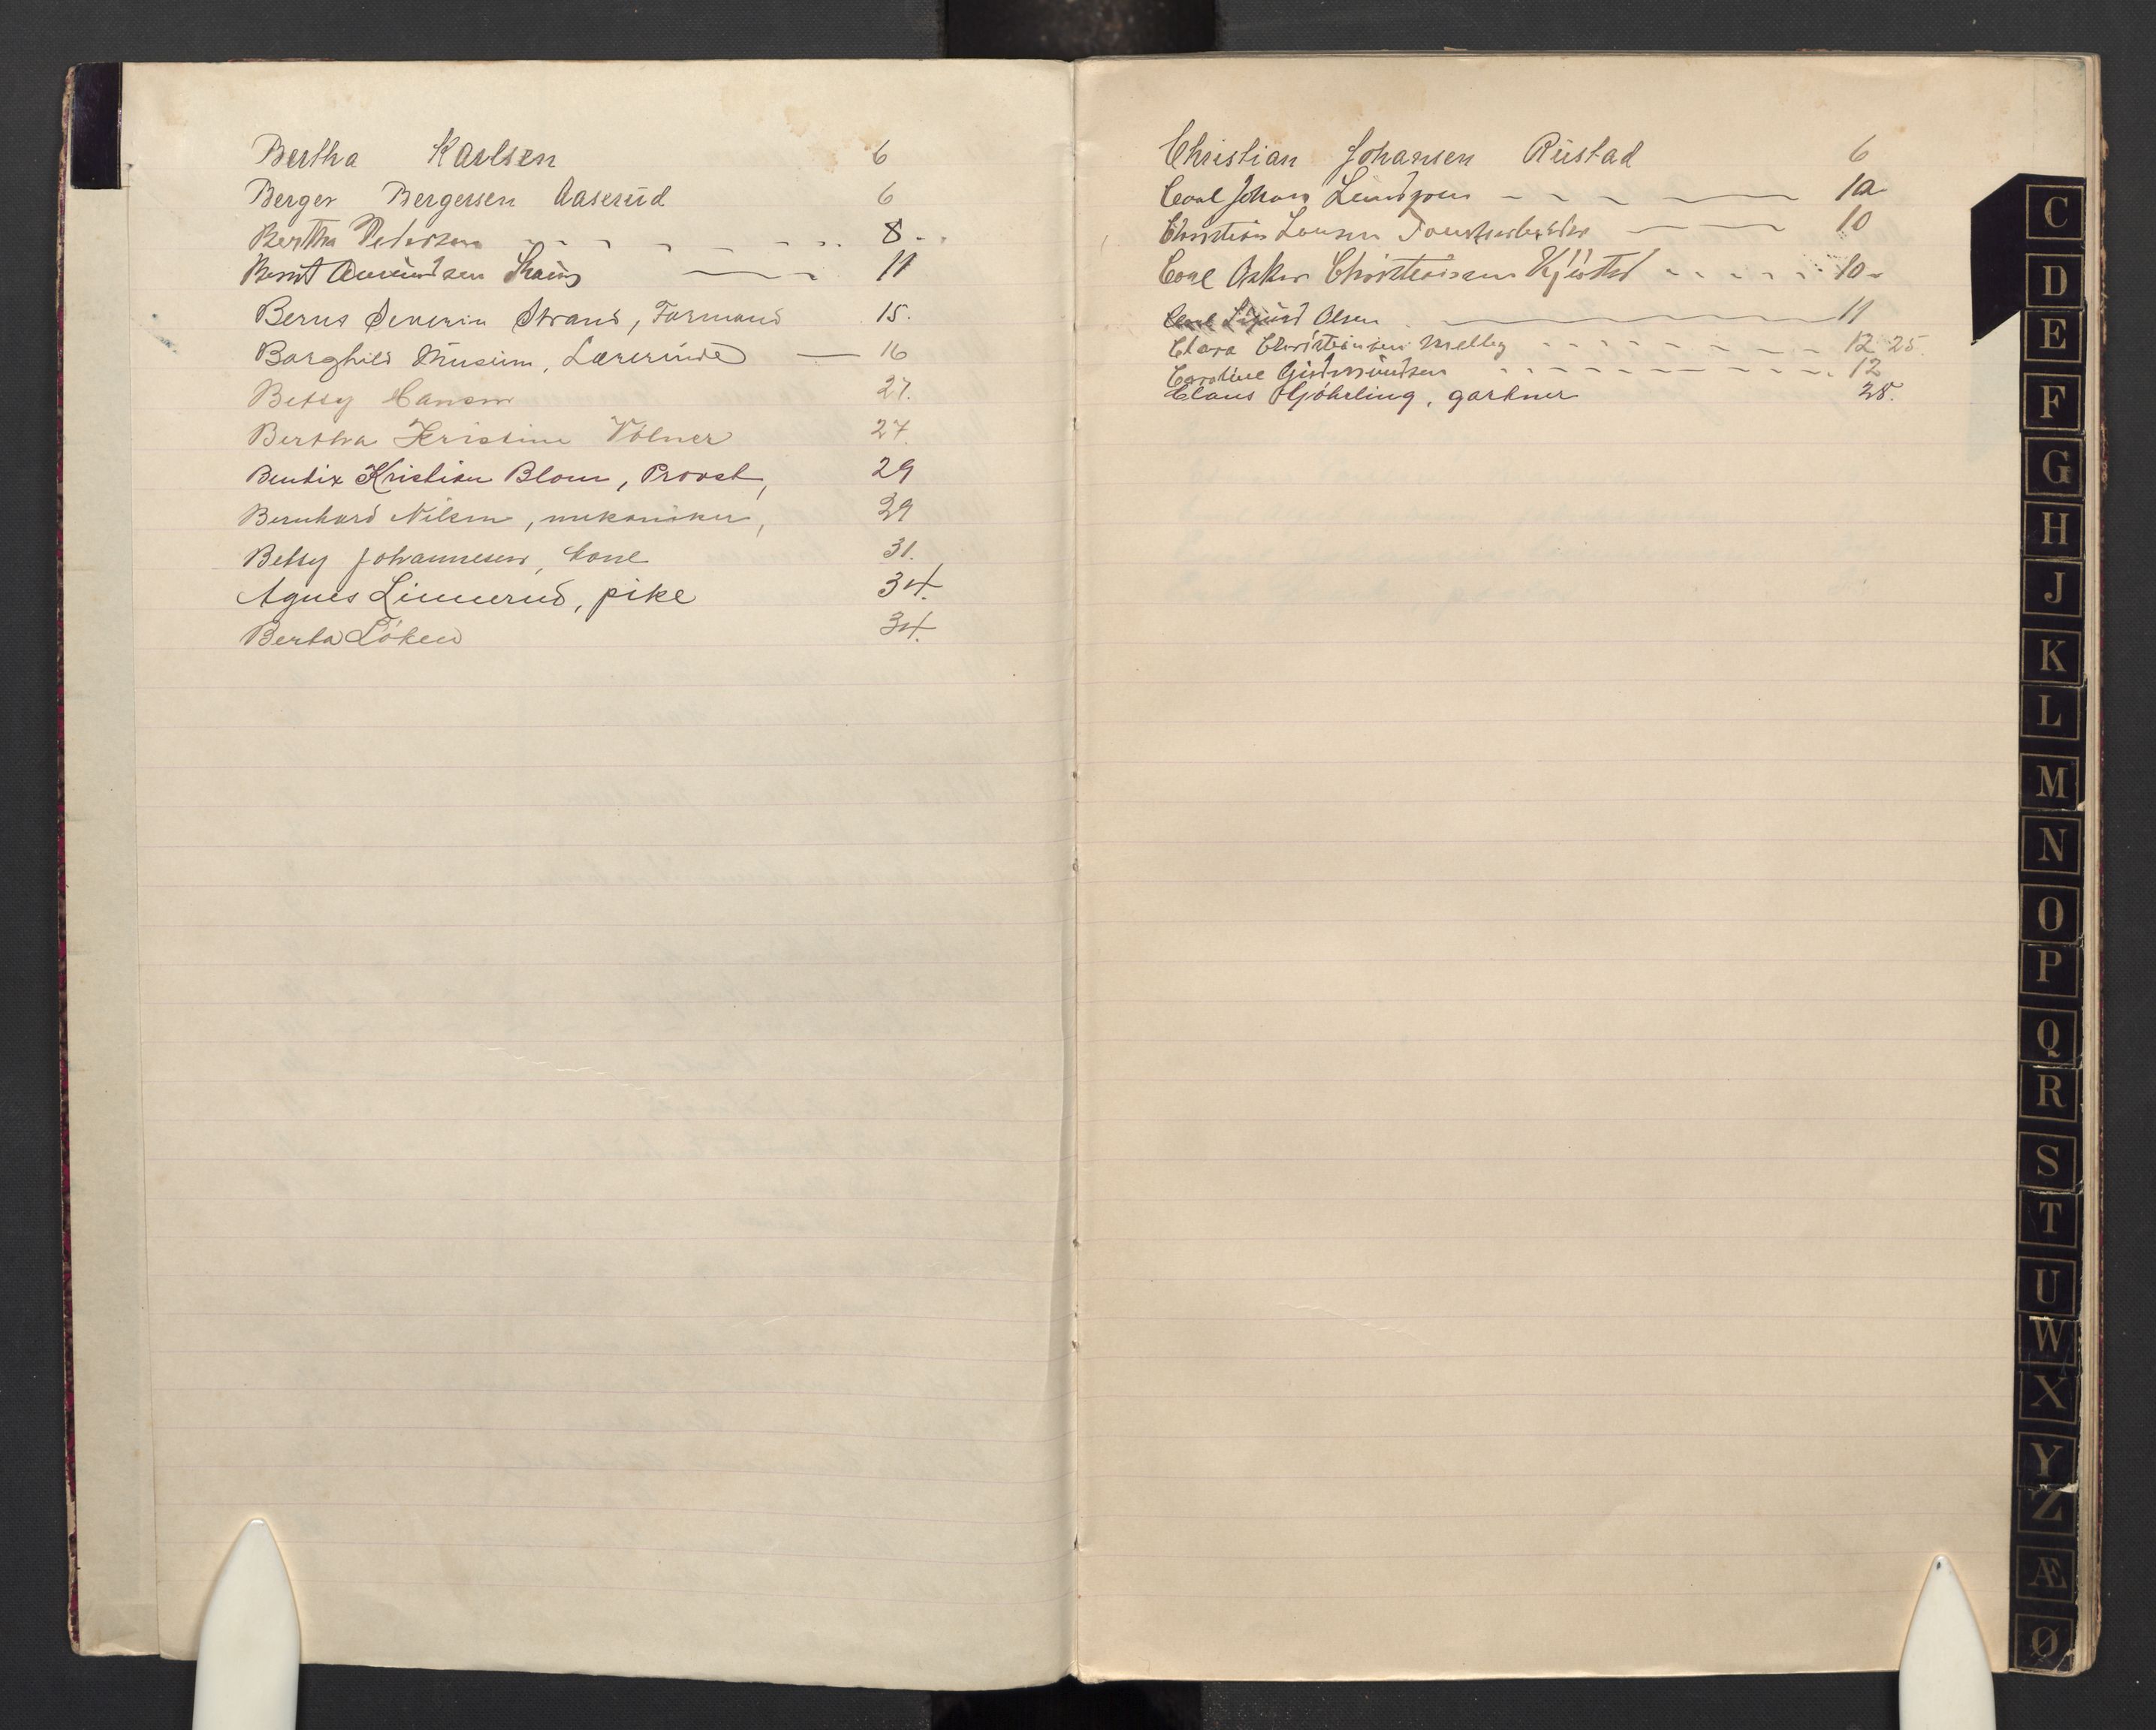 Bertha Karlsen 6
Berger Bergersen Aaserud 6
Bertha Pedersen 8
Bernt Amundsen 11
Bernt Severin Strand, Formand 15.
Borghild Musum, Lærerinde 16
Betsy Hansen 27.
Bertha Kristine Volner 27.
Bendix Kristian Blom, Provst, 29
Bernhard Nilsen, mekaniker, 29
Betsy Johannesen, kone 31.
Agnes Linnerud, pike 34.
Berta Löken 34.
Christian Johansen Rustad 6
Carl Johan 10
Christian Larsen 10
Carl Christiansen 10
Carl Sigurd Olsen 11
Clara Christiansen Melby 12 25.
Caroline Gudmundsen 12
Claus Gjöhrling, gartner 28.
C
D
E
F
G
H
J
K
L
M
N
O
P
Q
R
S
T
U
W
X
Y
Z
Æ
Ø